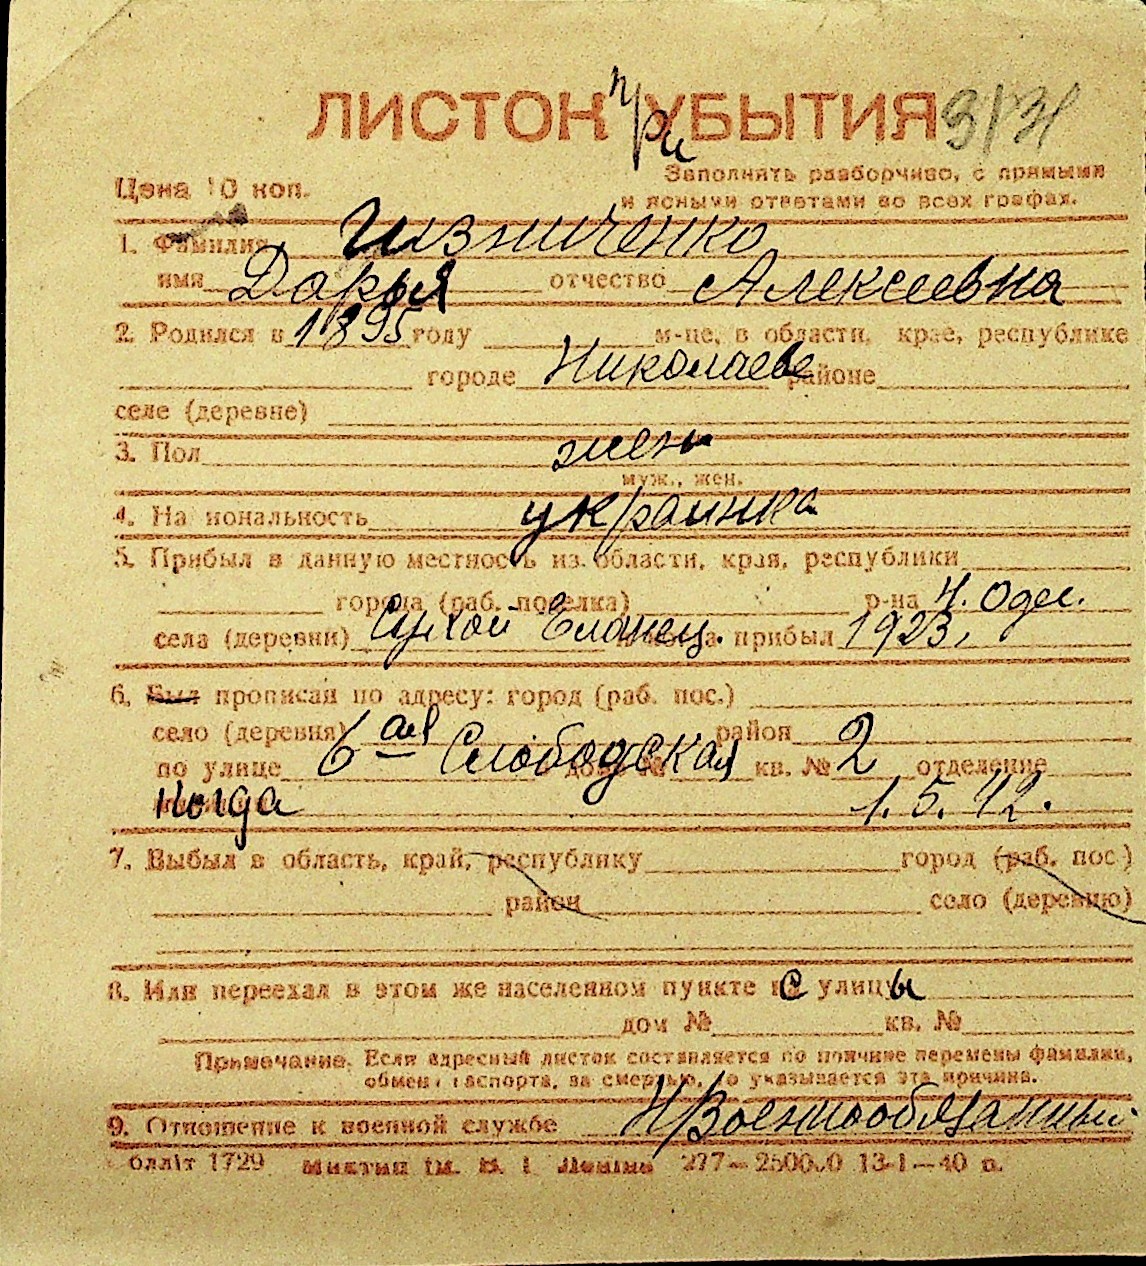 ЛИСТОК УБЫТИЯ
при
Цена 10 коп.
Заполнять разборчиво, с прямыми
и ясными ответами во всех графах.
1. Фамилия
имя Дарья отчество Алексеевна
2. Родился в 1895 году м-це, в области, крае, республике
городе Николаеве районе
селе (деревне)
3. Пол жен
муж., жен.
4. На иональность украинка
5. Прибыл в данную местность из области, края, республики
города (раб. поселка) р-на Н. Одес.
села (деревни) Сухой Еланец. когда прибыл 1923,
6. Был прописан по адресу: город (раб. пос.)
село (деревня) район
по улице 6 ая Слободская дом № кв. № 2 отделение
Когда 1. 5. 42.
7. Выбыл в область, край, республику город (раб. пос.)
район село (деревню)
8. Или переехал в этом же населенном пункте с улицы
дом № кв. №
Примечание. Если адресный листок составляется по причине перемены фамилии,
обмена паспорта, за смертью, то указывается эта причина.
9. Отношение к военной службе Н/Военнообязанный
облліт 1729 Миктип ім. В. І. Леніна 277—250000 13-1—40 р.